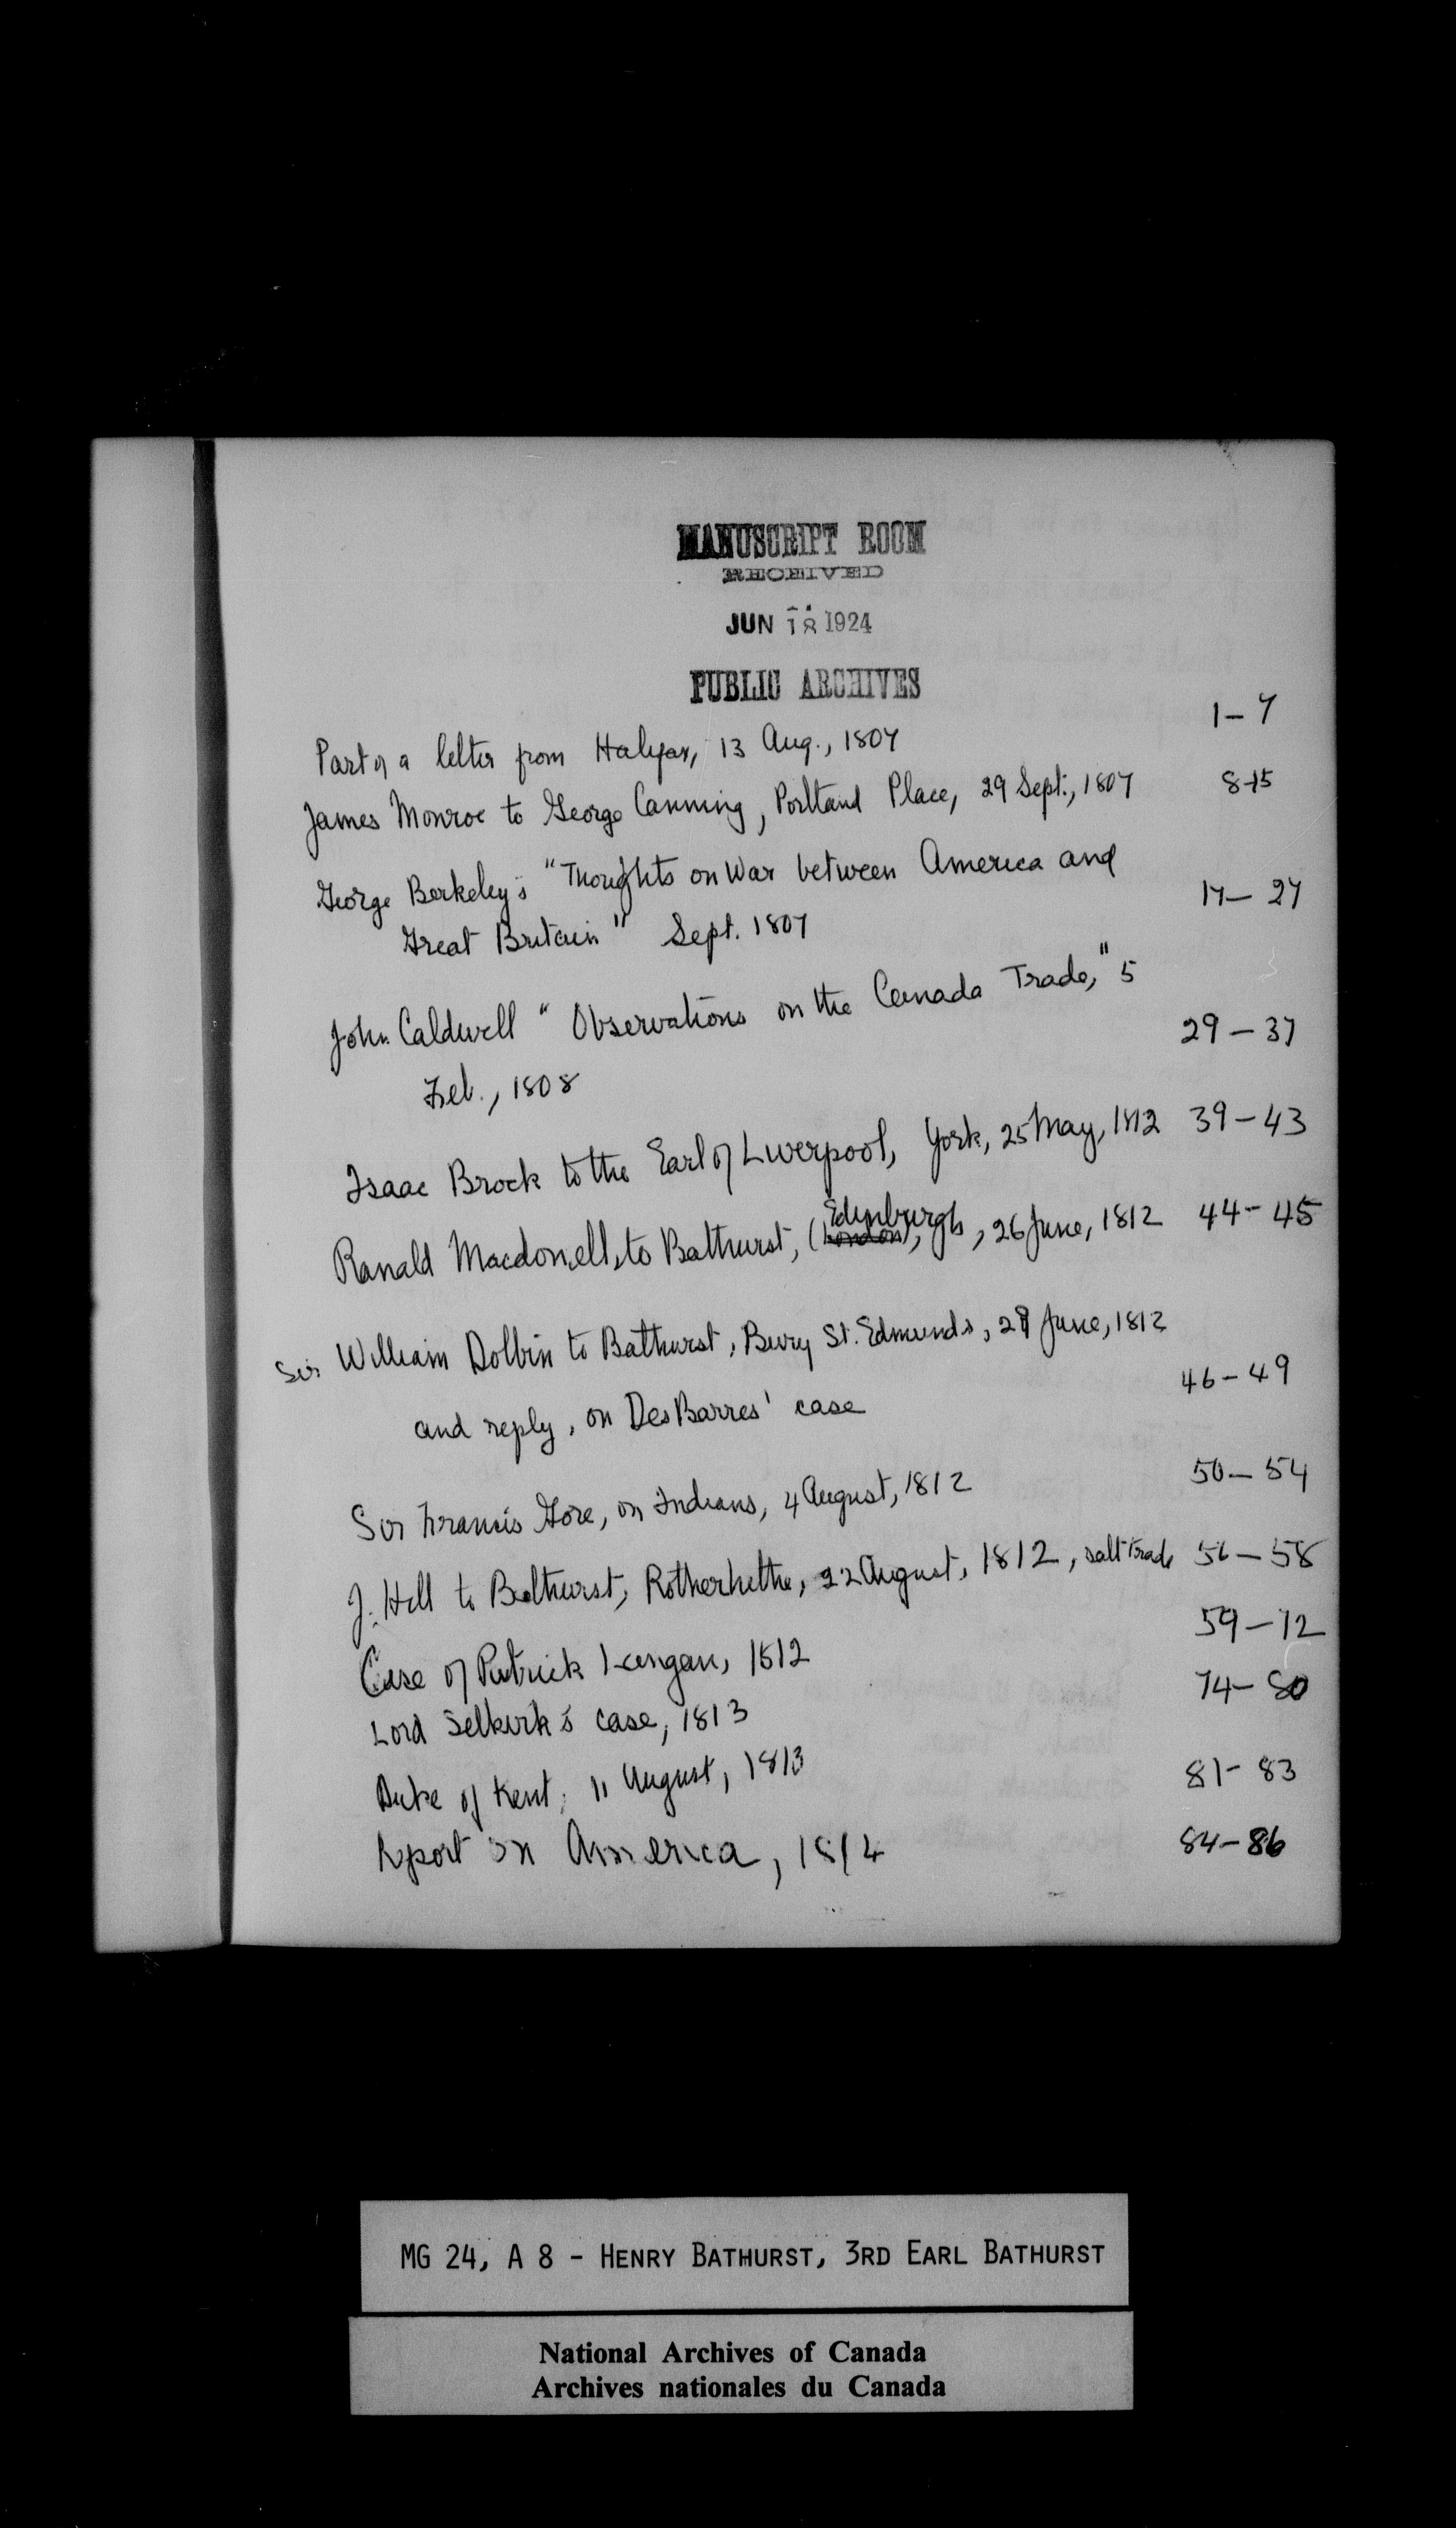 MANUSCRIPT ROOM
RECEIVED
JUN 18 1924
PUBLIC ARCHIVES
Part of a letter from Halifax, 13 Aug., 1807 1-7
James Monroe to George Canning, Portland Place, 29 Sept., 1807 8-15
George Berkeley's "Thoughts on War between America and
Great Britain" Sept. 1807 17-27
John Caldwell "Observations on the Canada Trade," 5
Feb., 1808 29-37
Isaac Brock to the Earl of Liverpool, York, 25 May, 1812 39-43
Ranald Macdonell, to Bathurst, (London), Edinburgh, 26 June, 1812 44-45
Sir William Dolbin to Bathurst, Bury St. Edmunds, 29 June, 1812
and reply, on DesBarres' case 46-49
Sir Francis Gore, on Indians, 4 August, 1812 50-54
J. Hill to Bathurst, Rotherhithe, 22 August, 1812, salt trade 56-58
Case of Patrick Langan, 1812 59-72
Lord Selkirk's case, 1813 74-80
Duke of Kent, 11 August, 1813 81-83
Report on America, 1814 84-86
MG 24, A 8 - HENRY BATHURST, 3RD EARL BATHURST
National Archives of Canada
Archives nationales du Canada